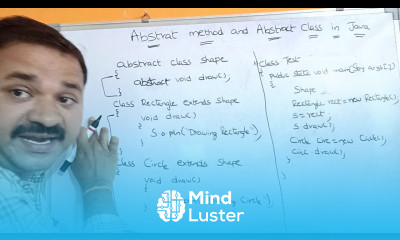 Abstrat method and Abstract Class in Java
abstract class shape
{
abstract void draw();
}
Class Rectangle extends Shape
{
void draw()
{
S.o.pln("Drawing Rectangle");
}
Class Circle extends Shape
{
void draw()
{
Circle");
Class Test
{
Public static void main(
{
Shape
Rectangle rect = new Rectangle();
s = rect;
s.draw();
Circle = new Circle();
draw();
}
}
Mind
Luster